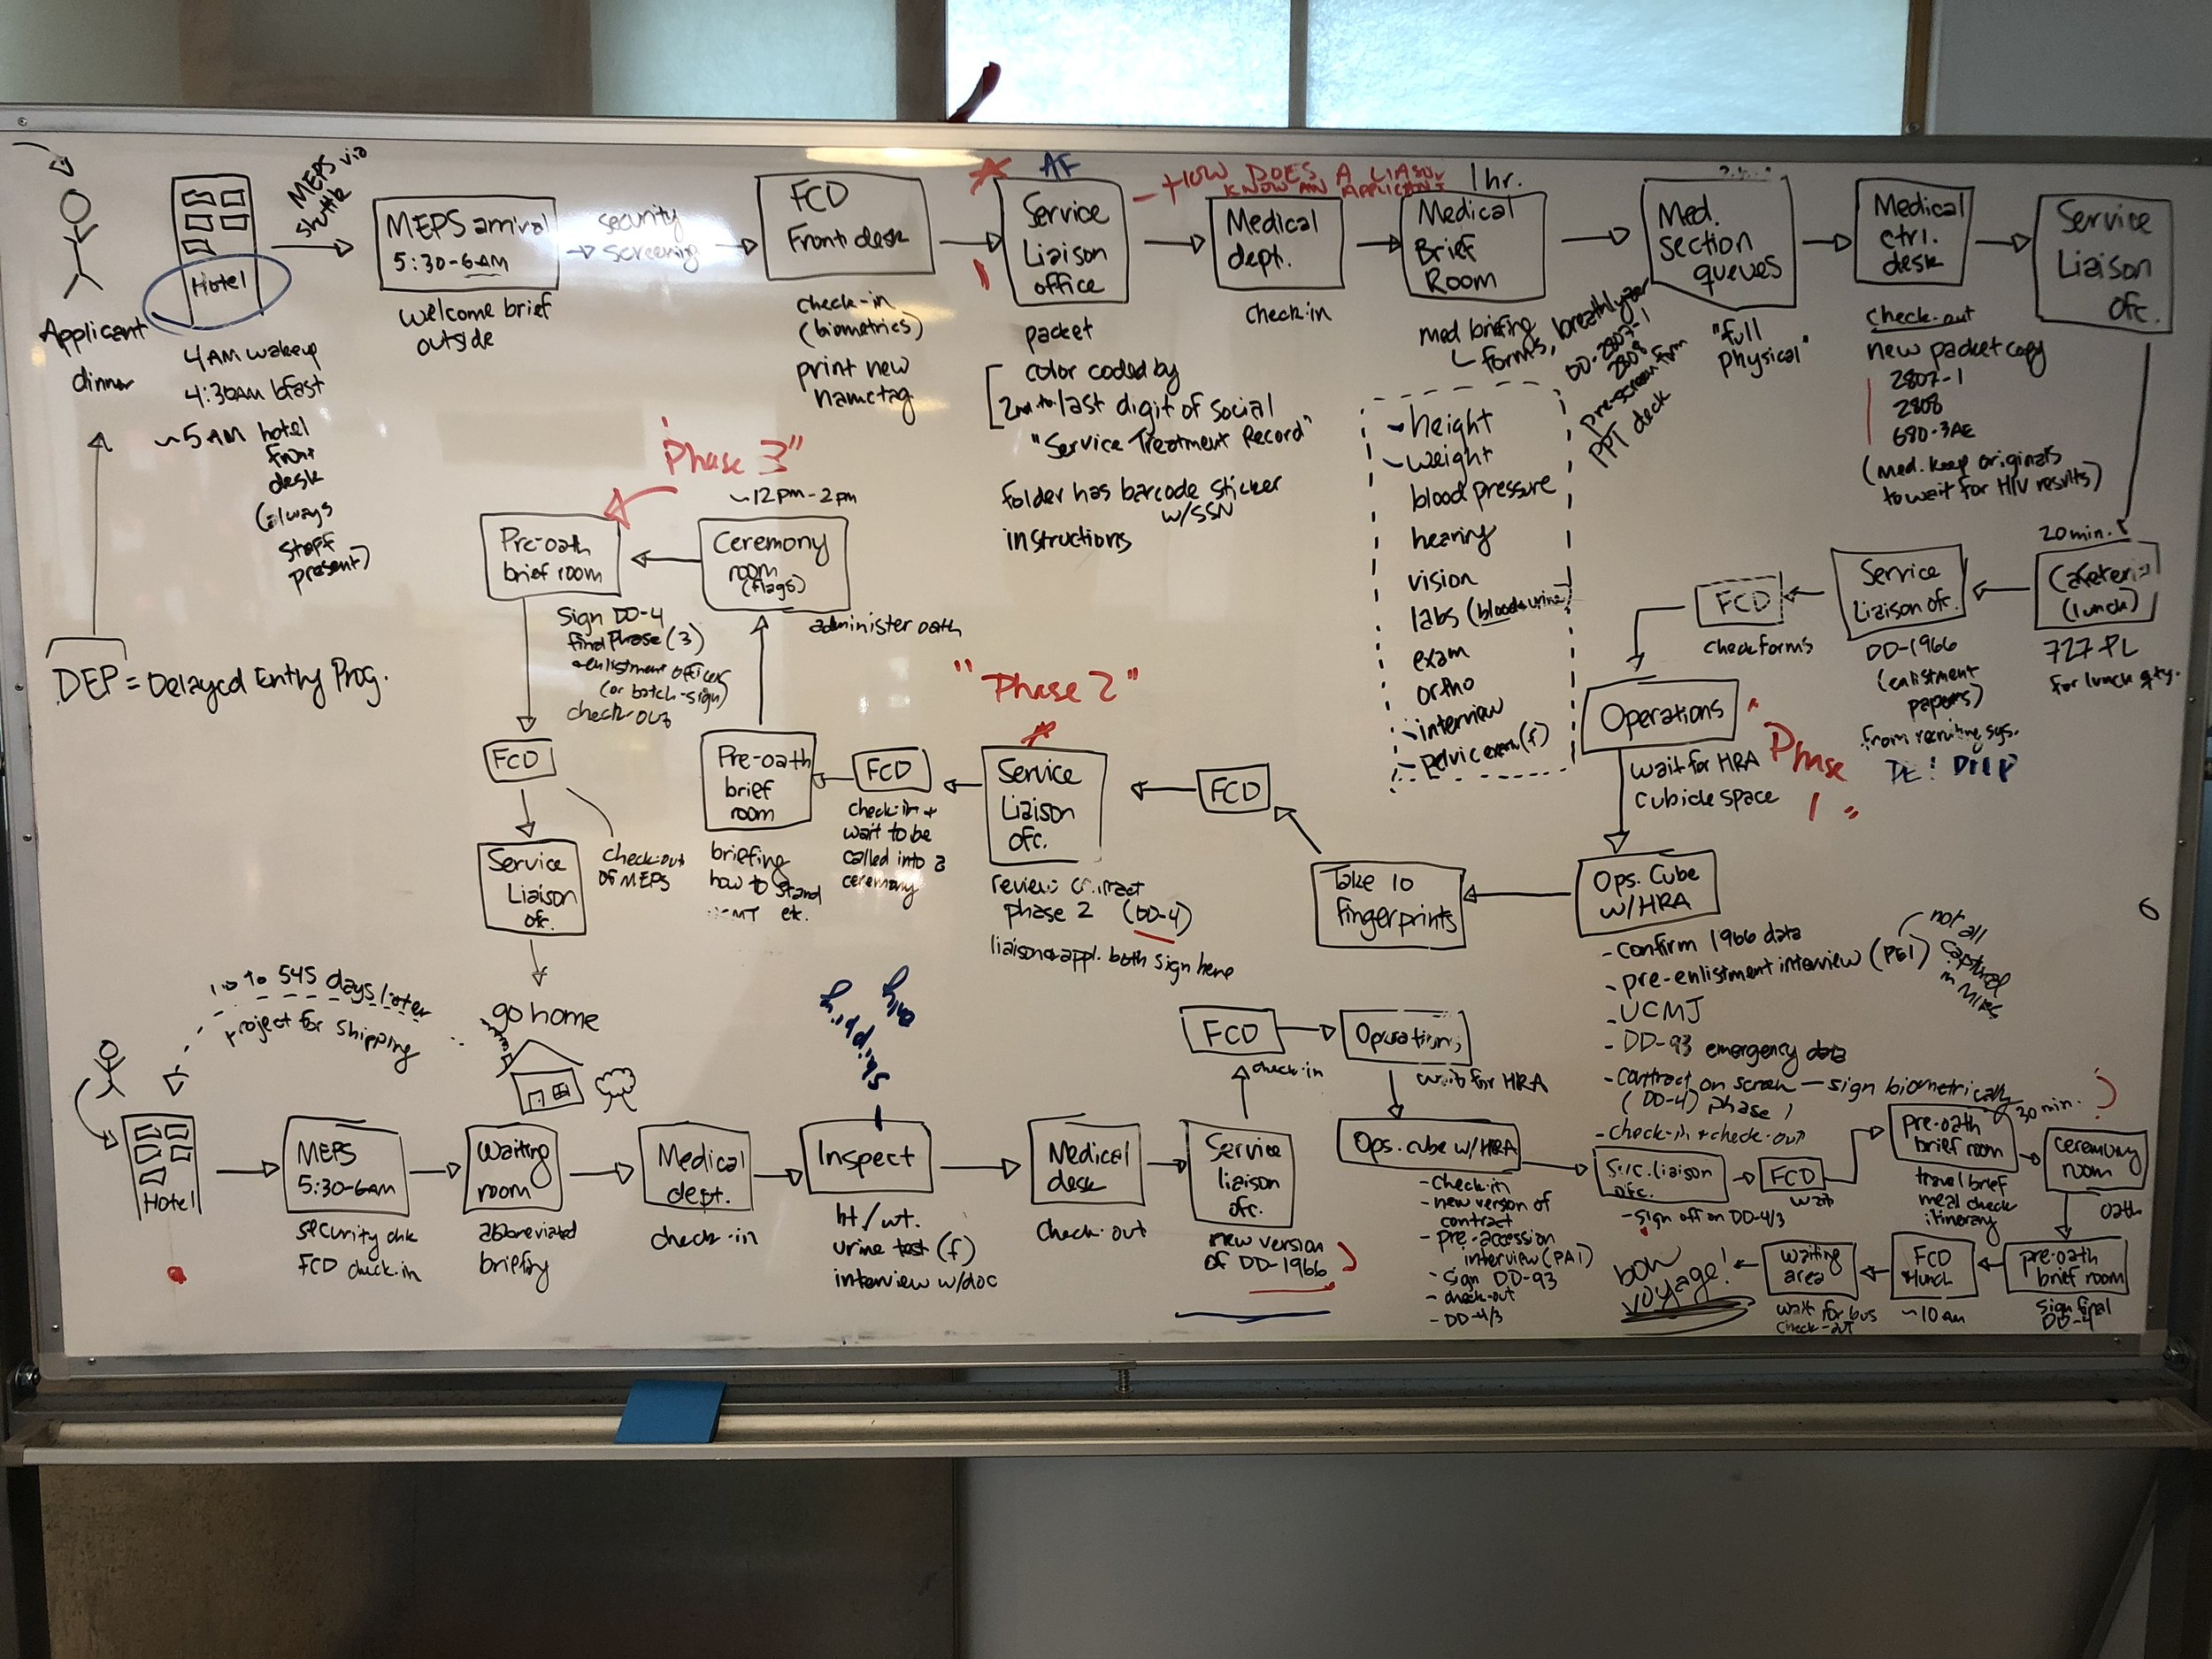 Applicant
dinner
Hotel
4AM wakeup
4:30AM bfast
~5AM hotel
front
desk
(always
staff
present)
MEPS via
shuttle
MEPS arrival
5:30-6AM
welcome brief
outside
security
screening
FCD
Front desk
check-in
(biometrics)
print new
nametag
AF
Service
Liaison
office
packet
color coded by
2nd to last digit of social
"Service Treatment Record"
folder has barcode sticker
w/SSN
instructions
- HOW DOES A LIASON
KNOW AN APPLICANT
Medical
dept.
check-in
1 hr.
Medical
Brief
Room
med briefing
forms, breathlyzer
DD-2807-1
2808
pre-screen form
PPT deck
- height
- weight
blood pressure
hearing
vision
labs (blood & urine)
exam
ortho
interview
pelvic exam (f)
Med.
section
queues
"full
physical"
Medical
ctrl.
desk
check-out
new packet copy
2807-1
2808
680-3AE
(med. keep originals
to wait for HIV results)
Service
Liaison
ofc.
20 min.
Cafeteria
(lunch)
727-PL
for lunch qty.
Service
Liaison ofc.
DD-1966
(enlistment
papers)
from recruiting sys.
FCD
check forms
Operations
wait for HRA
cubicle space
"Phase
1"
Ops. Cube
w/HRA
- confirm 1966 data
- pre-enlistment interview (PEI)
not all
captured
in MIRS
- UCMJ
- DD-93 emergency data
- contract on screen - sign biometrically
(DD-4) phase 1
- check-in & check-out
Take 10
fingerprints
FCD
"Phase 2"
Service
Liaison
ofc.
review contract
phase 2 (DD-4)
liaison & appl. both sign here
FCD
check-in &
wait to be
called into a
ceremony
Pre-oath
brief
room
briefing
how to stand
etc.
~12pm-2pm
Ceremony
room
(flags)
administer oath
"Phase 3"
Pre-oath
brief room
Sign DD-4
final phase (3)
& enlistment officer
(or batch-sign)
check-out
FCD
check-out
of MEPS
Service
Liaison
ofc.
go home
DEP = Delayed Entry Prog.
up to 545 days later
project for shipping
Hotel
MEPS
5:30-6AM
security chk
FCD check-in
Waiting
room
abbreviated
briefing
Medical
dept.
check-in
shipping
only
Inspect
ht./wt.
urine test (f)
interview w/doc
Medical
desk
check-out
Service
liaison
ofc.
new version
of DD-1966
FCD
check-in
Operations
wait for HRA
Ops. cube w/HRA
- Check-in
- new version of
contract
- pre-accession
interview (PAI)
- sign DD-93
- check-out
- DD-4/3
Svc. liaison
ofc.
- sign off on DD-4/3
FCD
wait
pre-oath
brief room
travel brief
meal check
itinerary
30 min.
ceremony
room
oath
pre-oath
brief room
sign final
DD-4
FCD
+ lunch
~10am
waiting
area
wait for bus
check-out
bon
voyage!